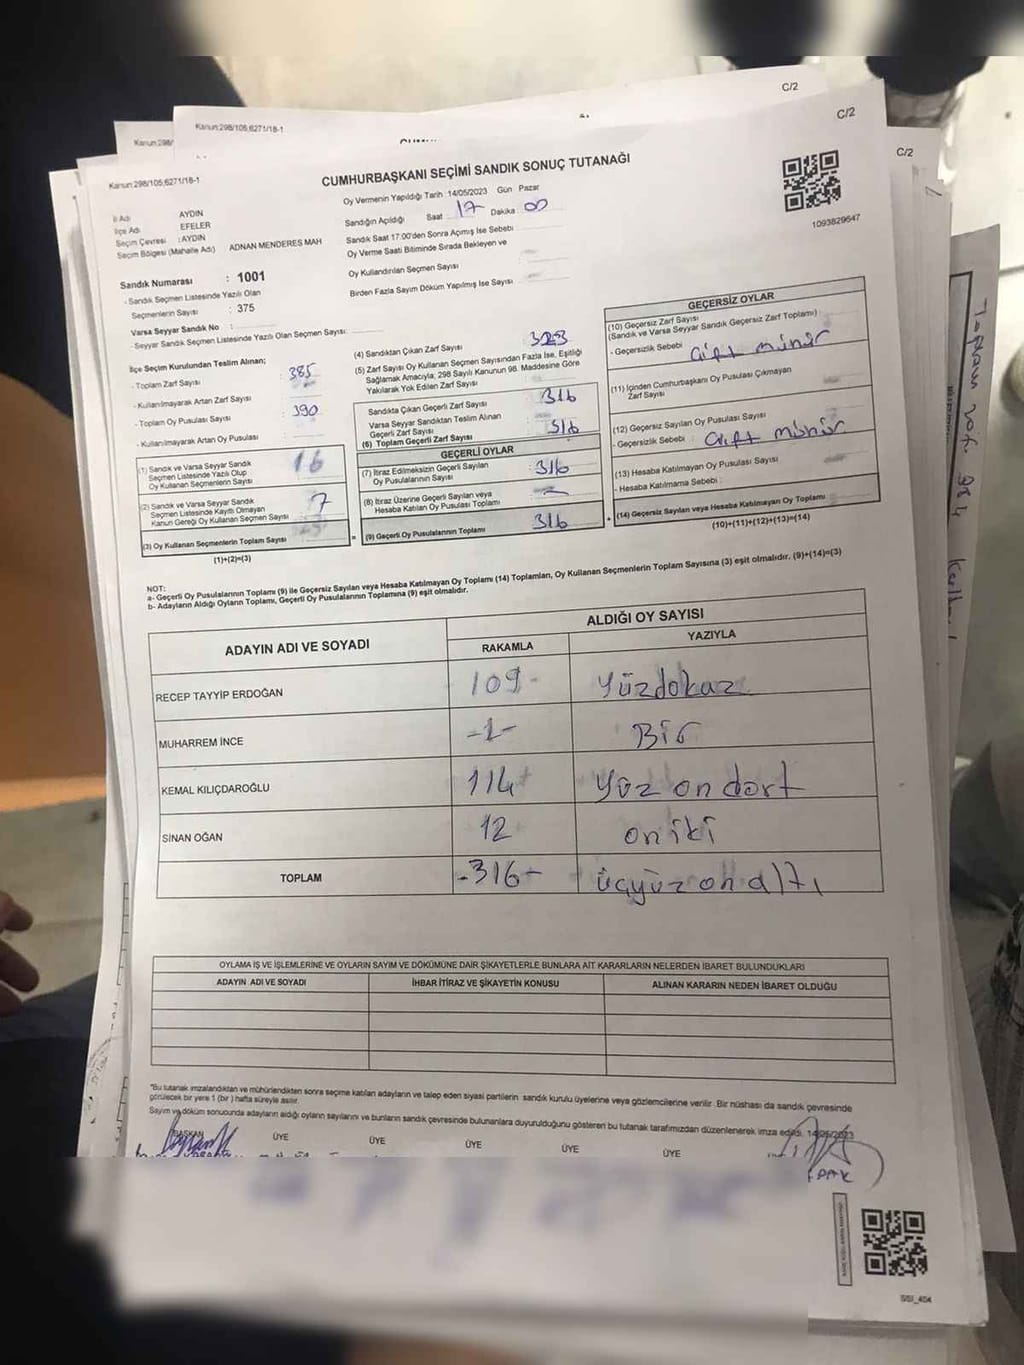 C/2
Kanun:298/105;6271/18-1
C/2
Kanun:298/
C/2
Kanun:298/105;6271/18-1
CUMHURBAŞKANI SEÇİMİ SANDIK SONUÇ TUTANAĞI
1093829647
İl Adı AYDIN
İlçe Adı EFELER
Seçim Çevresi : AYDIN
Seçim Bölgesi (Mahalle Adı) ADNAN MENDERES MAH
Sandık Numarası : 1001
- Sandık Seçmen Listesinde Yazılı Olan
Seçmenlerin Sayısı : 375
Varsa Seyyar Sandık No :
- Seyyar Sandık Seçmen Listesinde Yazılı Olan Seçmen Sayısı:
Oy Vermenin Yapıldığı Tarih :14/05/2023 Gün Pazar
Sandığın Açıldığı Saat 17 Dakika 00
Sandık Saat 17:00'den Sonra Açılmış İse Sebebi
Oy Verme Saati Bitiminde Sırada Bekleyen ve
Oy Kullandırılan Seçmen Sayısı
Birden Fazla Sayım Döküm Yapılmış İse Sayısı
İlçe Seçim Kurulundan Teslim Alınan;
- Toplam Zarf Sayısı 385
- Kullanılmayarak Artan Zarf Sayısı
- Toplam Oy Pusulası Sayısı 390
- Kullanılmayarak Artan Oy Pusulası
(1) Sandık ve Varsa Seyyar Sandık
Seçmen Listesinde Yazılı Olup
Oy Kullanan Seçmenlerin Sayısı
(2) Sandık ve Varsa Seyyar Sandık
Seçmen Listesinde Kayıtlı Olmayan
Kanun Gereği Oy Kullanan Seçmen Sayısı 7
(3) Oy Kullanan Seçmenlerin Toplam Sayısı
(1)+(2)=(3)
(4) Sandıktan Çıkan Zarf Sayısı 323
(5) Zarf Sayısı Oy Kullanan Seçmen Sayısından Fazla İse, Eşitliği
Sağlamak Amacıyla; 298 Sayılı Kanunun 98. Maddesine Göre
Yakılarak Yok Edilen Zarf Sayısı
Sandıkta Çıkan Geçerli Zarf Sayısı 316
Varsa Seyyar Sandıktan Teslim Alınan
Geçerli Zarf Sayısı
(6) Toplam Geçerli Zarf Sayısı 316
GEÇERLİ OYLAR
(7) İtiraz Edilmeksizin Geçerli Sayılan
Oy Pusulalarının Sayısı 316
(8) İtiraz Üzerine Geçerli Sayılan veya
Hesaba Katılan Oy Pusulası Toplamı
(9) Geçerli Oy Pusulalarının Toplamı 316
GEÇERSİZ OYLAR
(10) Geçersiz Zarf Sayısı
(Sandık ve Varsa Seyyar Sandık Geçersiz Zarf Toplamı)
- Geçersizlik Sebebi çift mühür
(11) İçinden Cumhurbaşkanı Oy Pusulası Çıkmayan
Zarf Sayısı
(12) Geçersiz Sayılan Oy Pusulası Sayısı
- Geçersizlik Sebebi : çift mühür
(13) Hesaba Katılmayan Oy Pusulası Sayısı
- Hesaba Katılmama Sebebi :
(14) Geçersiz Sayılan veya Hesaba Katılmayan Oy Toplamı
(10)+(11)+(12)+(13)=(14)
NOT:
a- Geçerli Oy Pusulalarının Toplamı (9) ile Geçersiz Sayılan veya Hesaba Katılmayan Oy Toplamı (14) Toplamları, Oy Kullanan Seçmenlerin Toplam Sayısına (3) eşit olmalıdır. (9)+(14)=(3)
b- Adayların Aldığı Oyların Toplamı, Geçerli Oy Pusulalarının Toplamına (9) eşit olmalıdır.
ADAYIN ADI VE SOYADI ALDIĞI OY SAYISI
RAKAMLA YAZIYLA
RECEP TAYYİP ERDOĞAN 109- Yüzdokuz
MUHARREM İNCE -1- Bir
KEMAL KILIÇDAROĞLU 114 Yüz on dört
SİNAN OĞAN 12 on iki
TOPLAM -316- üçyüz on altı
OYLAMA İŞ VE İŞLEMLERİNE VE OYLARIN SAYIM VE DÖKÜMÜNE DAİR ŞİKAYETLERLE BUNLARA AİT KARARLARIN NELERDEN İBARET BULUNDUKLARI
ADAYIN ADI VE SOYADI İHBAR İTİRAZ VE ŞİKAYETİN KONUSU ALINAN KARARIN NEDEN İBARET OLDUĞU
"Bu tutanak imzalandıktan ve mühürlendikten sonra seçime katılan adayların ve talep eden siyasi partilerin sandık kurulu üyelerine veya gözlemcilerine verilir. Bir nüshası da sandık çevresinde
görülecek bir yere 1 (bir) hafta süreyle asılır.
Sayım ve döküm sonucunda adayların aldığı oyların sayılarını ve bunların sandık çevresinde bulunanlara duyurulduğunu gösteren bu tutanak tarafımızdan düzenlenerek imza edildi.
BAŞKAN ÜYE ÜYE ÜYE ÜYE ÜYE
SSI_404